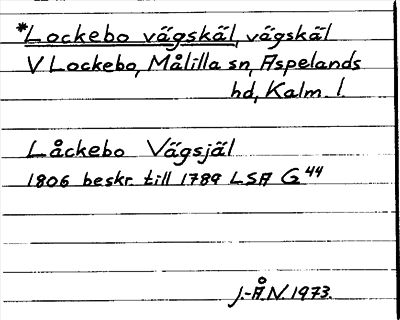 *Lockebo vägskäl, vägskäl
V Lockebo, Målilla sn, Aspelands
hd, Kalm. l
Låckebo Vägsjäl
1806 beskr. till 1789 LSA G44
J.-Å.N. 1973.